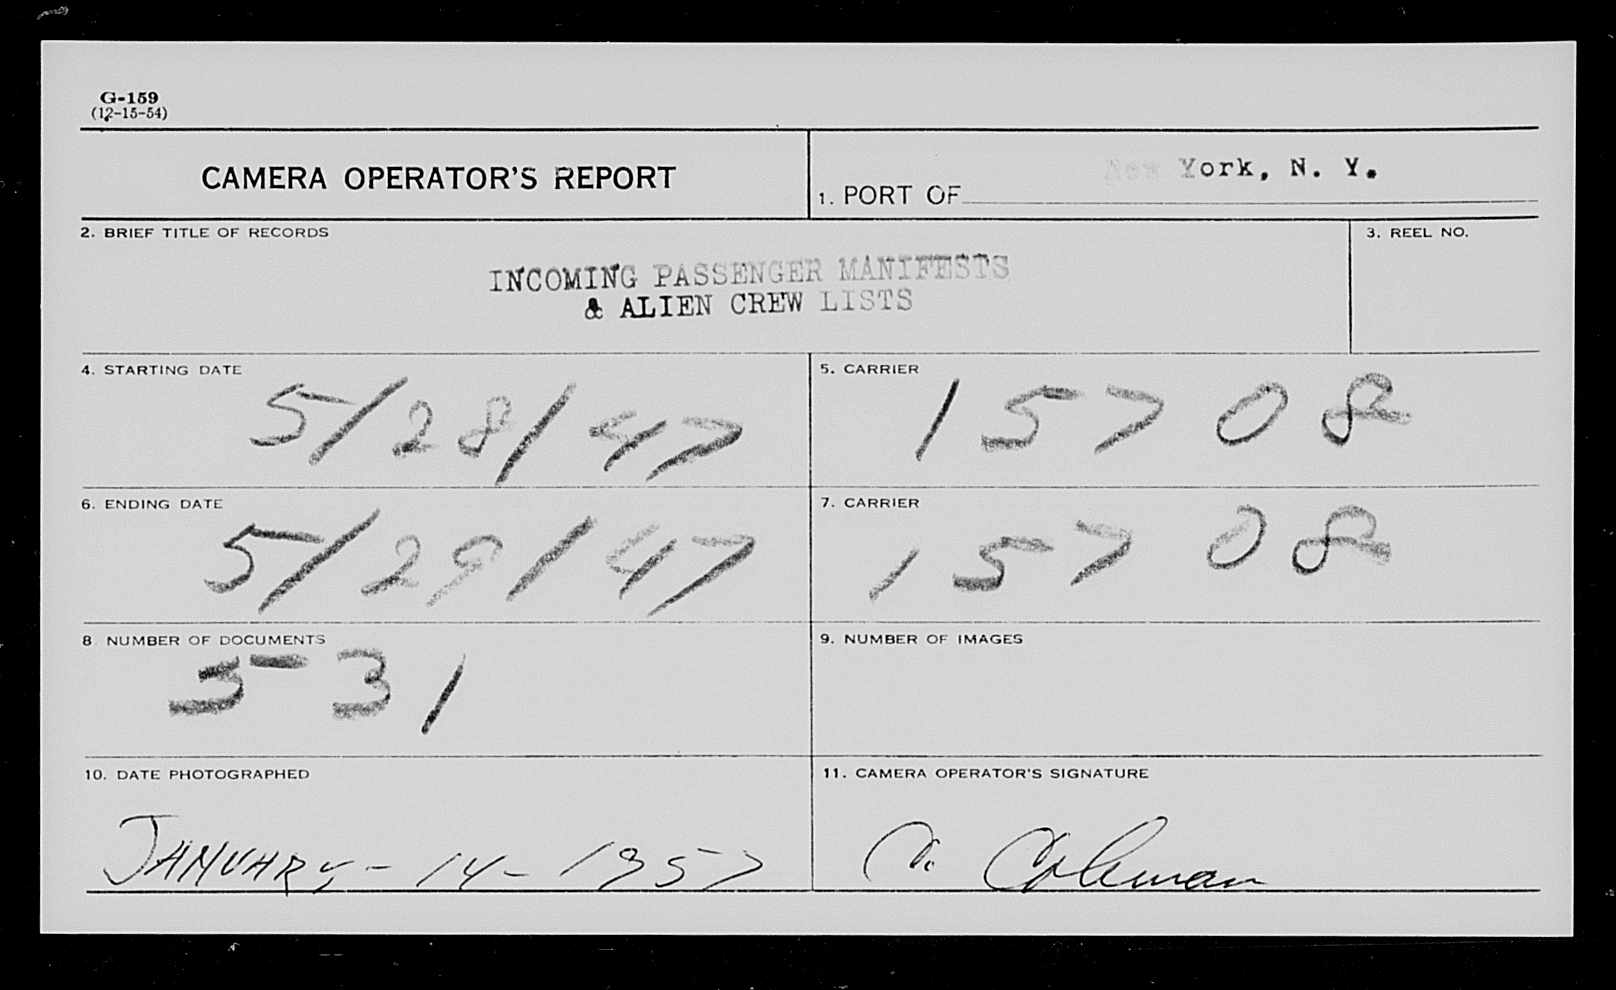 G-159
(12-15-54)
CAMERA OPERATOR'S REPORT
1. PORT OF New York, N. Y.
2. BRIEF TITLE OF RECORDS
3. REEL NO.
INCOMING PASSENGER MANIFESTS
& ALIEN CREW LISTS
4. STARTING DATE
5/28/47
5. CARRIER
15708
6. ENDING DATE
5/29/47
7. CARRIER
15708
8 NUMBER OF DOCUMENTS
531
9. NUMBER OF IMAGES
10. DATE PHOTOGRAPHED
JANUARY-14-1957
11. CAMERA OPERATOR'S SIGNATURE
Coleman